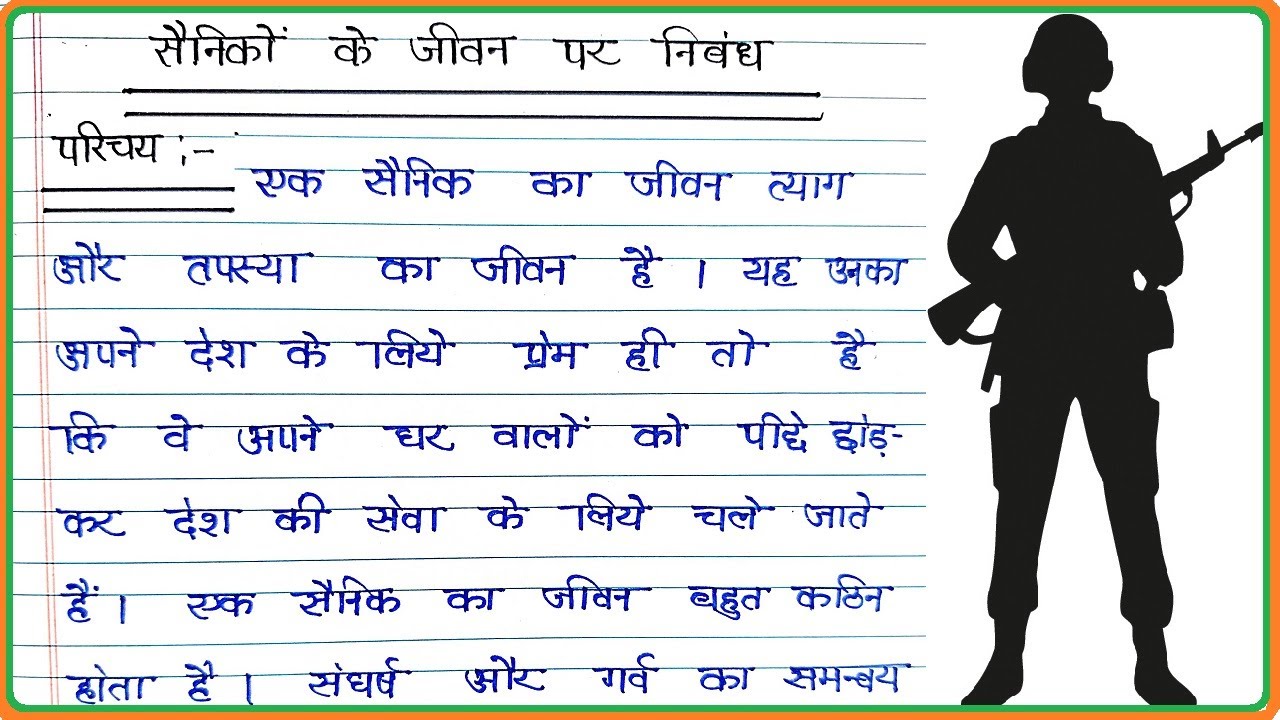 सैनिकों के जीवन पर निबंध
परिचय :-
एक सैनिक का जीवन त्याग
और तपस्या का जीवन है । यह उनका
अपने देश के लिये प्रेम ही तो है
कि वे अपने घर वालों को पीछे छोड़-
कर देश की सेवा के लिये चले जाते
हैं । एक सैनिक का जीवन बहुत कठिन
होता है । संघर्ष और गर्व का समन्वय